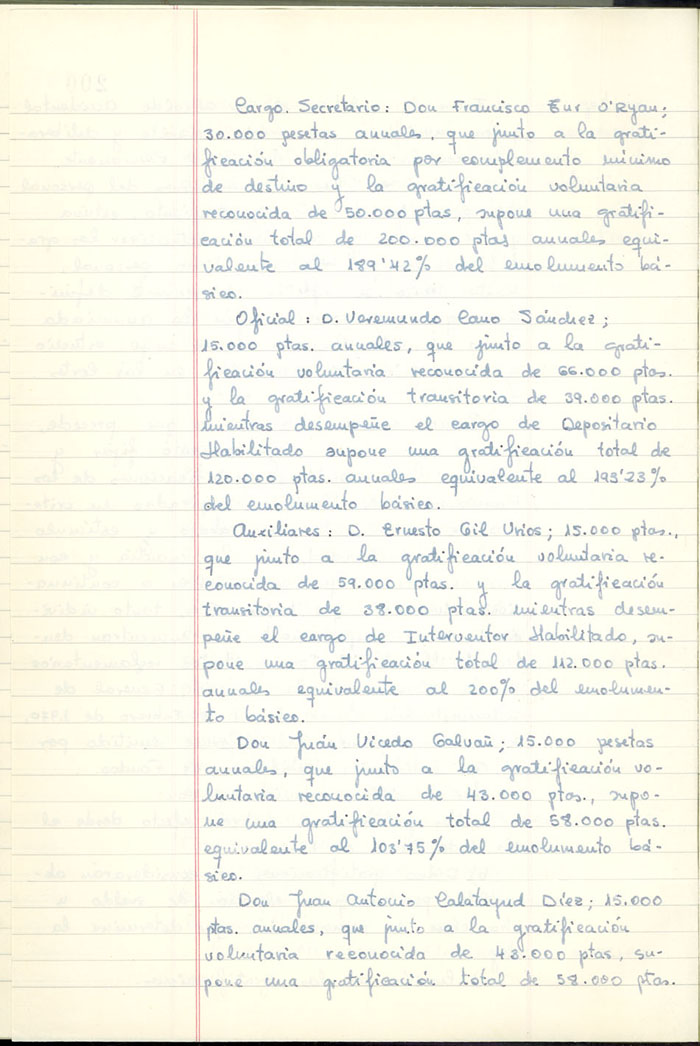 Cargo. Secretario: Don Francisco Zur O'Ryan;
30.000 pesetas anuales, que junto a la grati-
ficación obligatoria por complemento mínimo
de destino y la gratificación voluntaria
reconocida de 50.000 ptas, supone una gratifi-
cación total de 200.000 ptas anuales equi-
valente al 189'42% del emolumento bá-
sico.
Oficial: D. Veremundo Cano Sánchez;
15.000 ptas. anuales, que junto a la grati-
ficación voluntaria reconocida de 66.000 ptas.
y la gratificación transitoria de 39.000 ptas.
mientras desempeñe el cargo de Depositario
Habilitado supone una gratificación total de
120.000 ptas. anuales equivalente al 193'23%
del emolumento básico.
Auxiliares: D. Ernesto Gil Urios; 15.000 ptas.,
que junto a la gratificación voluntaria re-
conocida de 59.000 ptas. y la gratificación
transitoria de 38.000 ptas. mientras desem-
peñe el cargo de Interventor Habilitado, su-
pone una gratificación total de 112.000 ptas.
anuales equivalente al 200% del emolumen-
to básico.
Don Juán Vicedo Galvañ; 15.000 pesetas
anuales, que junto a la gratificación vo-
luntaria reconocida de 43.000 ptas., supo-
ne una gratificación total de 58.000 ptas.
equivalente al 103'75% del emolumento bá-
sico.
Don Juan Antonio Calatayud Díez; 15.000
ptas. anuales, que junto a la gratificación
voluntaria reconocida de 43.000 ptas, su-
pone una gratificación total de 58.000 ptas.